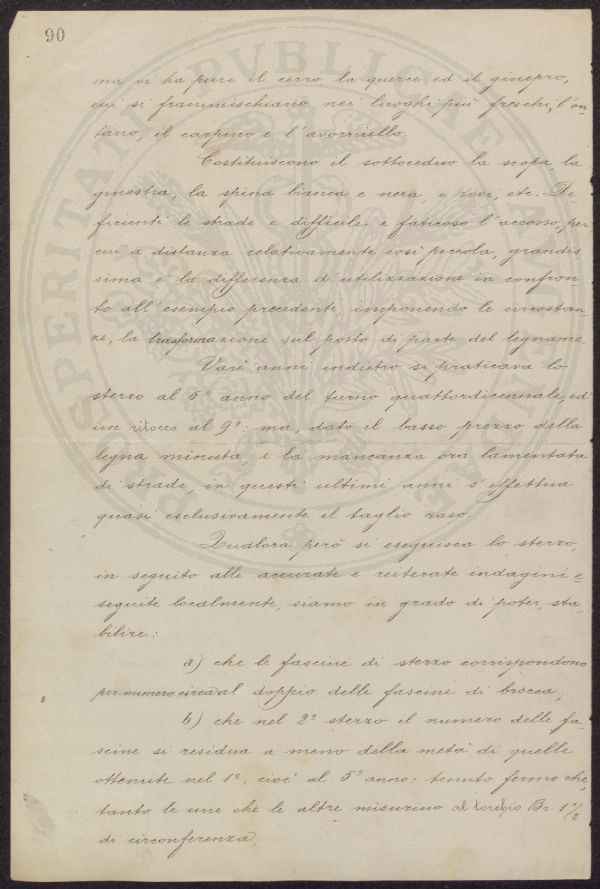 90
ma vi ha pure il cerro la querce ed il ginepro,
cui si frammischiano nei luoghi più freschi, l'on-
tano, il carpino e l'avorniello.
Costituiscono il sottoceduo la scopa la
ginestra, la spina bianca e nera, i rovi, etc. De-
ficienti le strade e difficile e faticoso l'accesso, per
cui a distanza relativamente così piccola, grandis
sima è la differenza d'utilizzazione in confron-
to all'esempio precedente, imponendo le circostan-
ze, la trasformazione sul posto di parte del legname.
Vari anni indietro si praticava lo
sterzo al 5° anno del turno quattordicennale, ed
un ritocco al 9°: ma, dato il basso prezzo della
legna minuta, e la mancanza ora lamentata
di strade, in questi ultimi anni s'effettua
quasi esclusivamente il taglio raso.
Qualora però si eseguisca lo sterzo,
in seguito alle accurate e reiterate indagini e-
seguite localmente, siamo in grado di poter sta-
bilire:
a) che le fascine di sterzo corrispondono
per numero circa al doppio delle fascine di brocca;
b) che nel 2° sterzo il numero delle fa-
scine si residua a meno della metà di quelle
ottenute nel 1°, cioè al 5° anno: tenuto fermo che,
tanto le une che le altre misurino al torchio Br. 1 1/2
di circonferenza;
PROSPERITATI PVBLICAE AVGENDAE